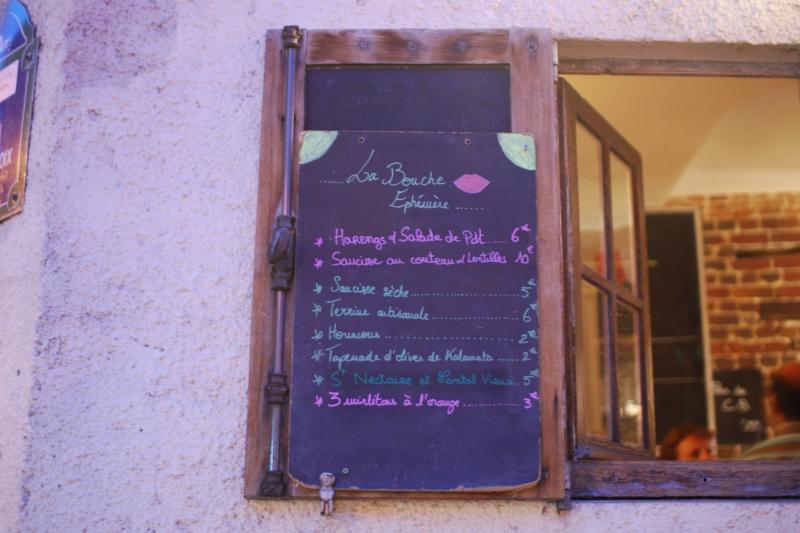 La Bouche
Ephémère
Harengs & Salade de Pdt ...... 6€
Saucisse au couteau & Lentilles 10€
Saucisse sèche ...... 5€
Terrine artisanale ...... 6€
Houmous ...... 2€
Tapenade d'olives de Kalamata ...... 2€
St Nectaire et Cantal Vieux 5€
3 mirlitons à l'orange ...... 3€
OIX